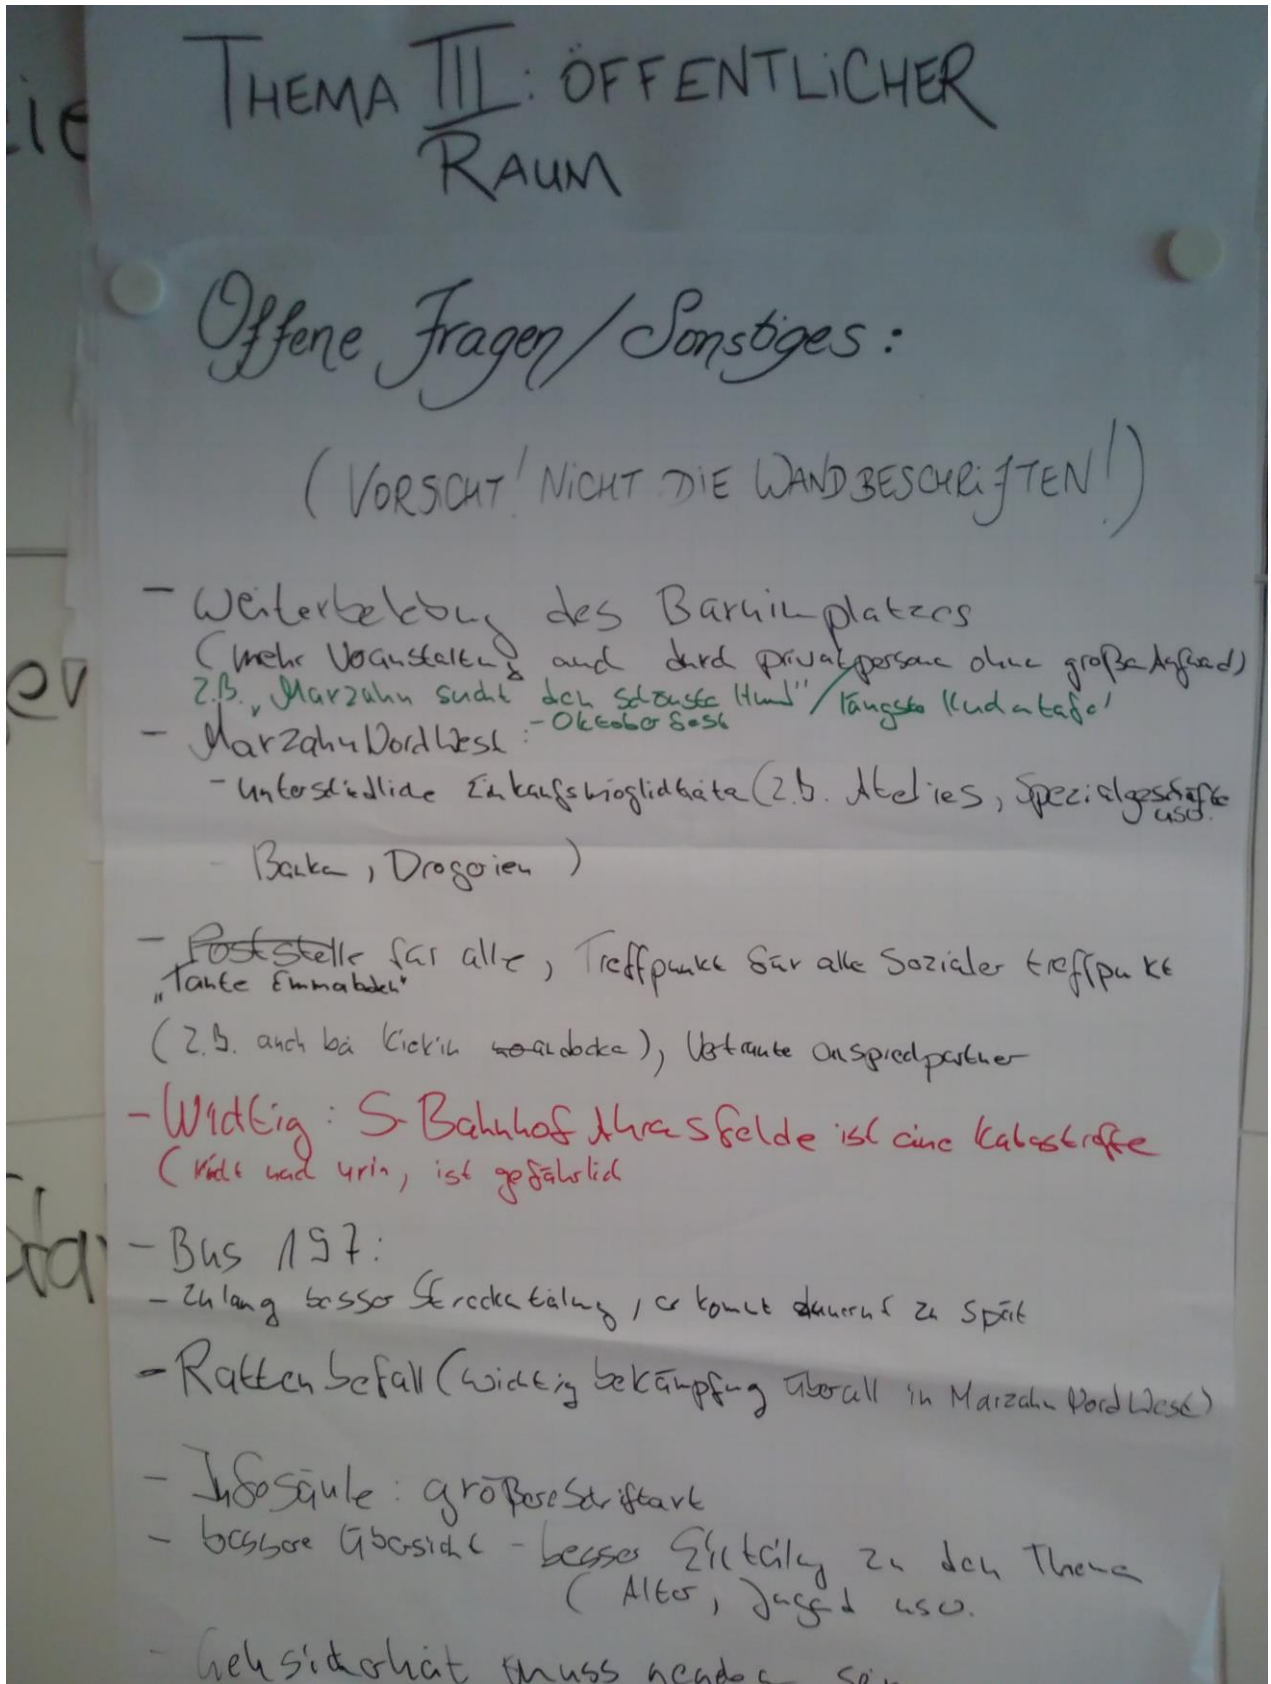 THEMA III: ÖFFENTLICHER
RAUM
Offene Fragen/Sonstiges:
(VORSICHT! NICHT DIE WAND BESCHRIFTEN!)
- Weiterbelebung des Barnimplatzes
(mehr Veranstaltung auch durch privatpersonen ohne große Aufwand)
z.B. "Marzahn sucht den schönste Hund" / längste Kuchentafel
- Oktoberfest
- Marzahn NordWest:
- unterschiedliche Einkaufsmöglichkeiten (z.B. Ateliers, Spezialgeschäfte
usw.
- Banken, Drogerien)
- Poststelle für alle, Treffpunkt für alle Sozialer treffpunkt
"Tante Emmaladen"
(z.B. auch bei Kiekin andocken), Vertraute Ansprechpartner
- Wichtig: S-Bahnhof Ahrensfelde ist eine Katastroffe
( und urin, ist gefährlich
- Bus 197:
- zu lang besser Streckenteilung, er kommt dauernd zu spät
- Rattenbefall (wichtig bekämpfung überall in Marzahn NordWest)
- Infosäule: größere Schriftart
- bessere Übersicht - besser Einteilung zu den Themen
(Alter, Jugend usw.
- Gehsicherheit muss sein